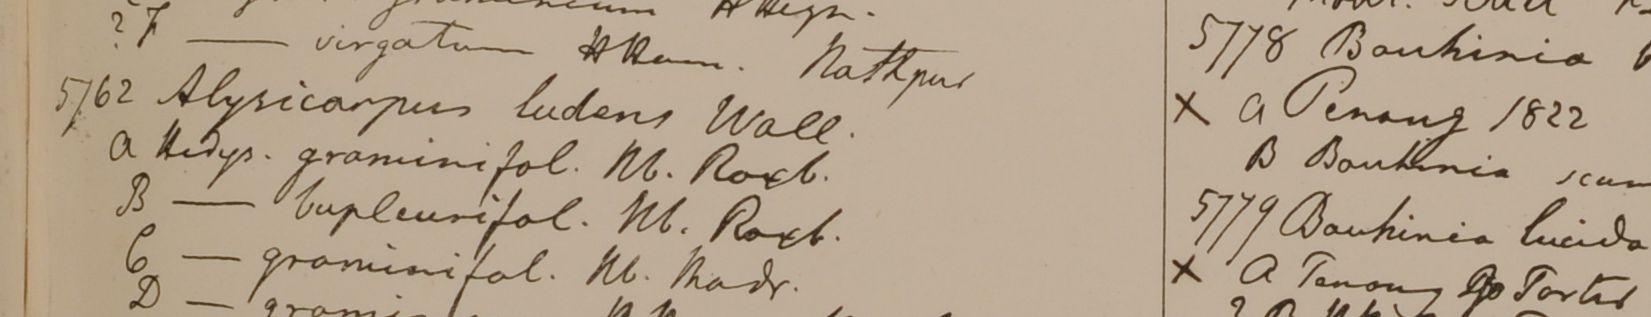 gramineum HHeyn.
? F — virgatum HHam. Nathpur
5762 Alysicarpus ludens Wall.
A Hedys. graminifol. Hb. Roxb.
B — bupleurifol. Hb. Roxb.
C — graminifol. Hb. Madr.
D —
5778 Bauhinia
X A Penang 1822
B Bauhinia scan
5779 Bauhinia lucida
X A Penang Porter